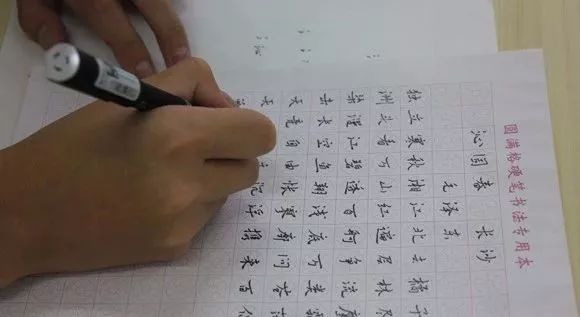 圆满格硬笔书法专用本
沁园春 长沙
毛泽东
独立寒秋湘江北去橘子
洲头看万山红遍层林尽
染漫江碧透百舸争流鹰
击长空鱼翔浅底万类霜
天竞自由怅寥廓问苍
沉浮携来百侣